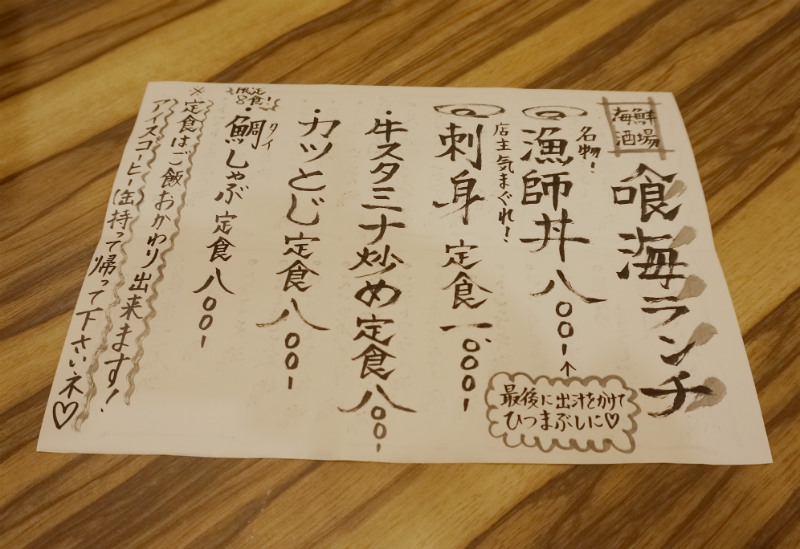 海鮮
酒場
喰海ランチ
名物!
漁師丼 八〇〇-
↑
最後に出汁をかけて
ひつまぶしに♡
店主気まぐれ!
刺身定食 一、〇〇〇-
・牛スタミナ炒め定食 八〇〇-
・カツとじ定食 八〇〇-
限定
8食!
・鯛しゃぶ定食 八〇〇-
タイ
※定食はご飯おかわり出来ます!
アイスコーヒー缶持って帰って下さいネ♡